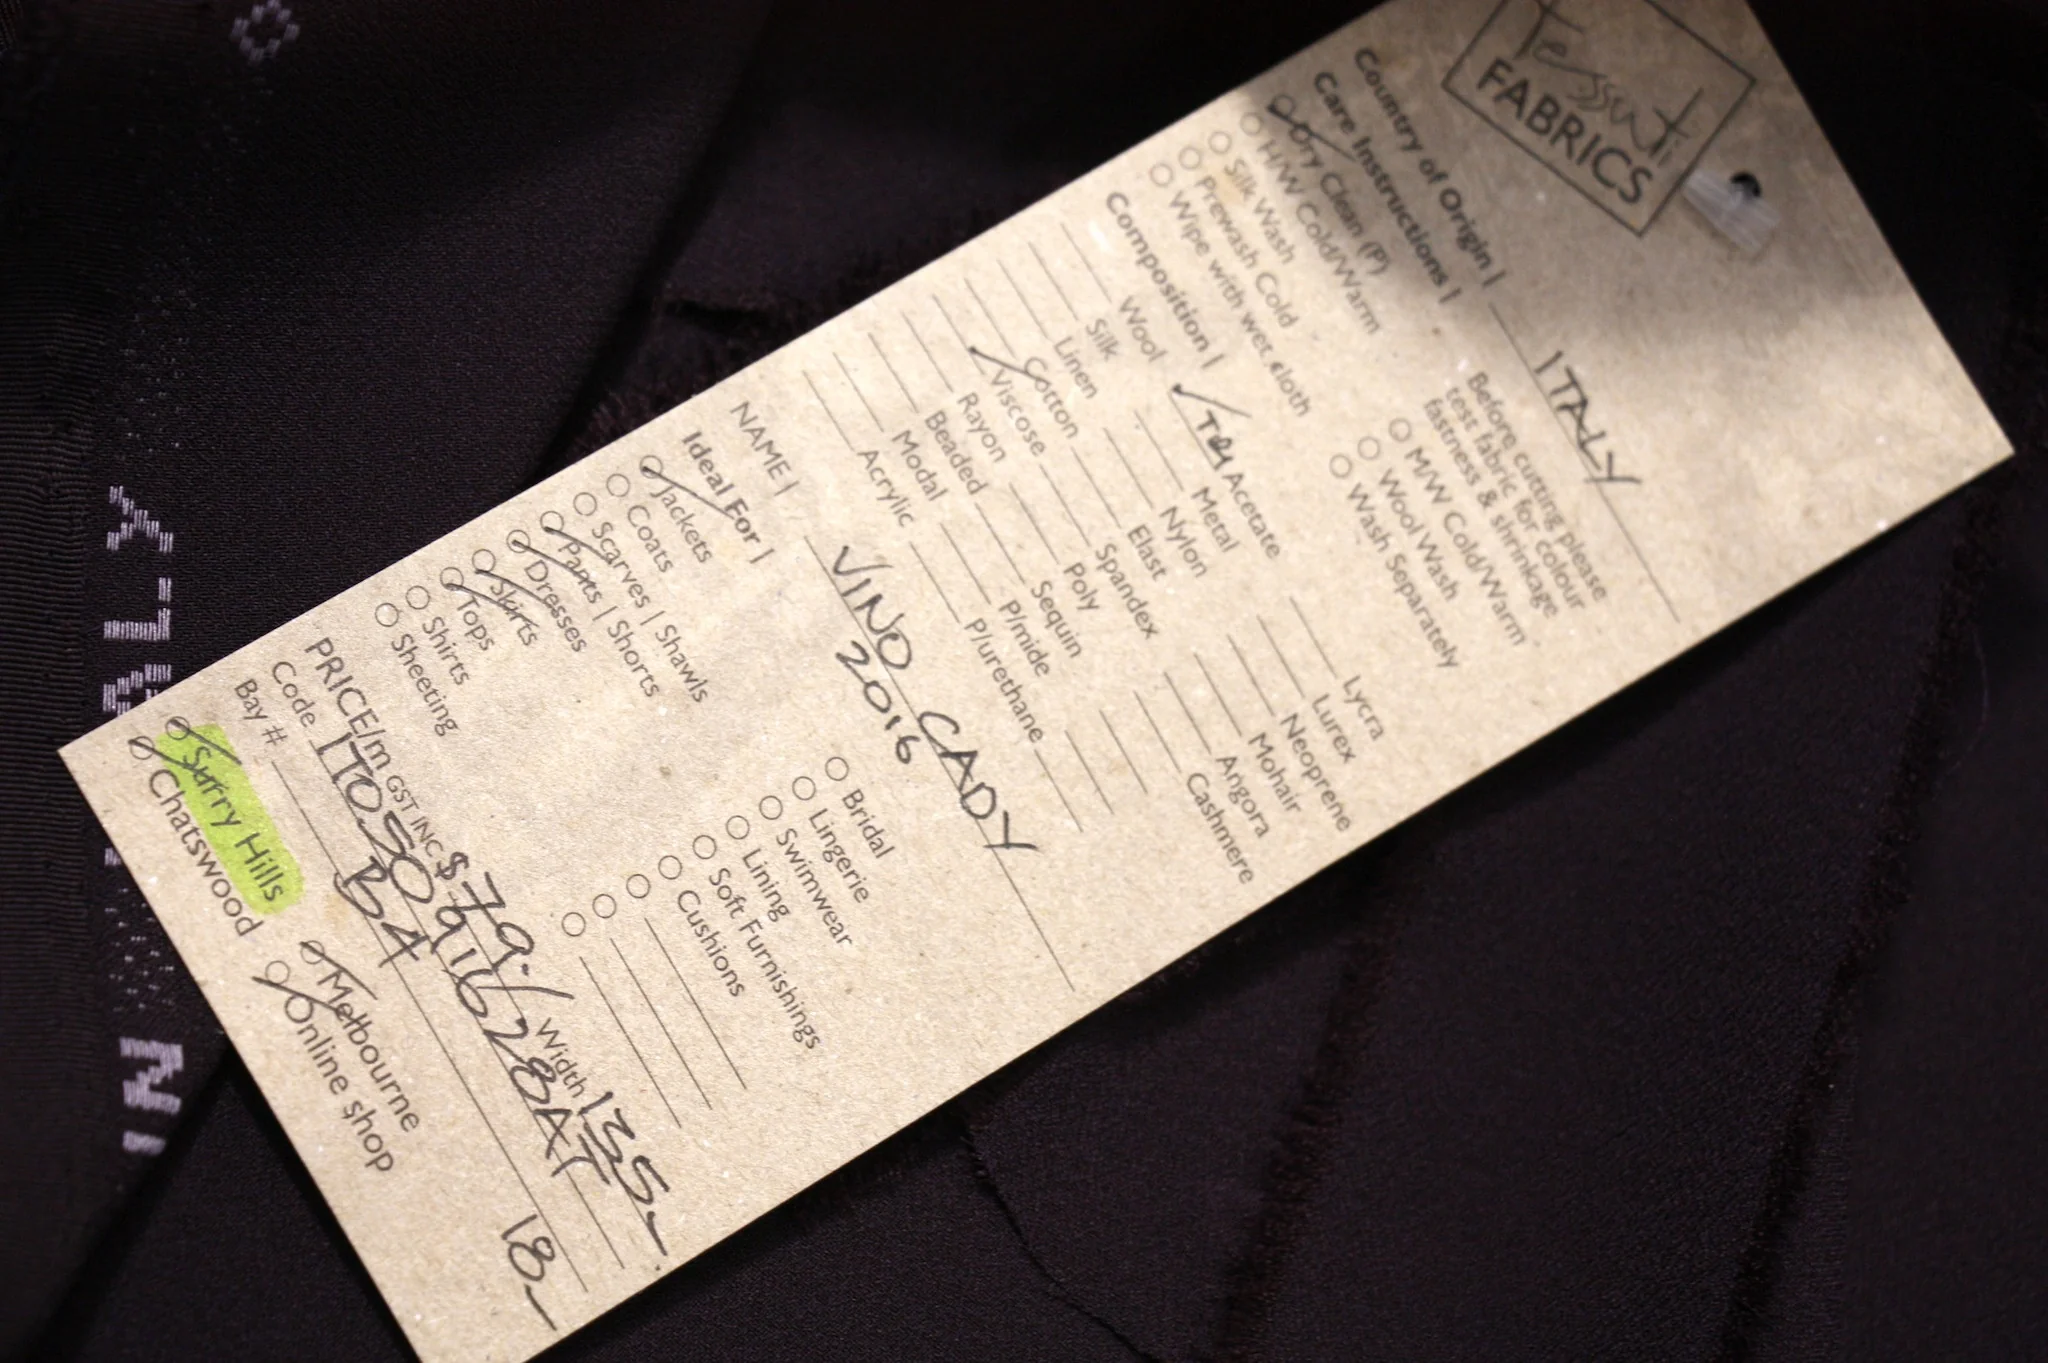 Tessuti
FABRICS
Country of Origin | ITALY
Care Instructions |
Before cutting please
test fabric for colour
fastness & shrinkage
Dry Clean (P)
H/W Cold/Warm
Silk Wash
Prewash Cold
Wipe with wet cloth
M/W Cold/Warm
Wool Wash
Wash Separately
Composition |
Wool
Silk
Linen
Cotton
✓ Viscose
Rayon
Beaded
Modal
Acrylic
✓ TRI Acetate
Metal
Nylon
Elast
Spandex
Poly
Sequin
P/mide
P/urethane
Lycra
Lurex
Neoprene
Mohair
Angora
Cashmere
NAME | VINO CADY
2016
Ideal For |
Jackets
Coats
Scarves | Shawls
Pants | Shorts
Dresses
Skirts
Tops
Shirts
Sheeting
Bridal
Lingerie
Swimwear
Lining
Soft Furnishings
Cushions
PRICE/m GST INC $79./ Width 135-
Code
Bay # B4 18-
Surry Hills
Chatswood
Melbourne
Online shop
IN
ALY